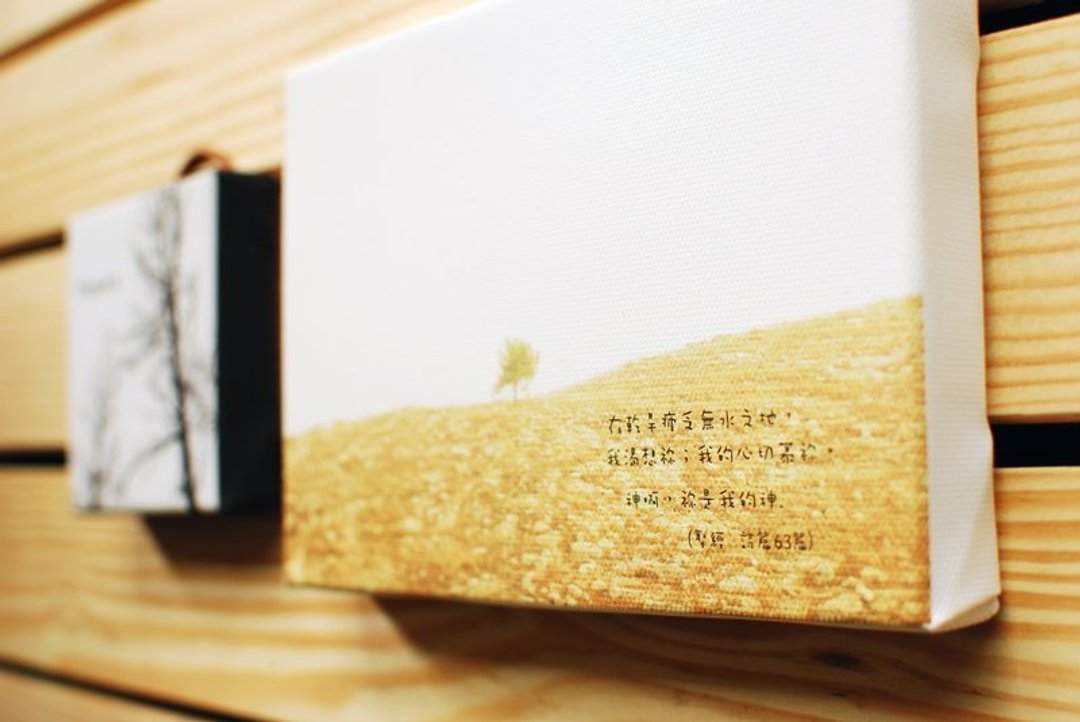 在乾旱疲乏無水之地，
我渴想祢；我的心切慕祢。
神啊，祢是我的神.
(聖經 詩篇63篇)